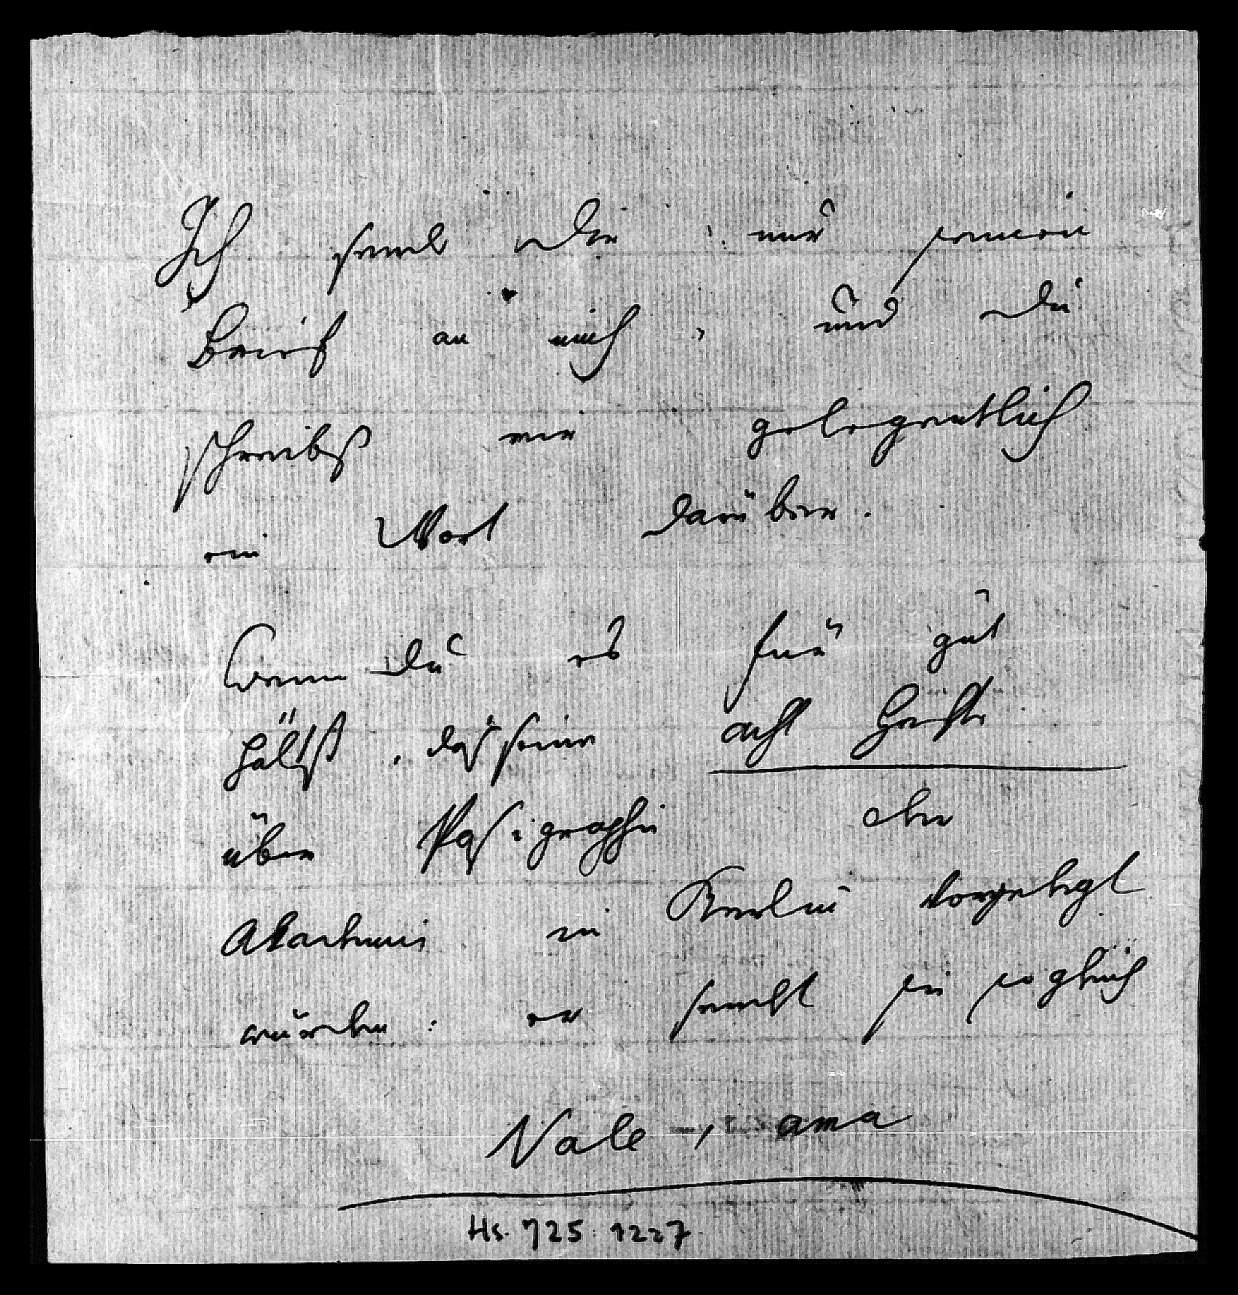 Ich send Dir nur seinen
Brief an mich, und Du
schreibst mir gelegentlich
ein Wort darüber.
Wenn Du es für gut
hältst, daß seine acht Hefte
über Pasigraphie der
Akademie in Berlin vorgelegt
würden: er sendet sie sogleich
Vale –, ama
Hs. 725. 1227